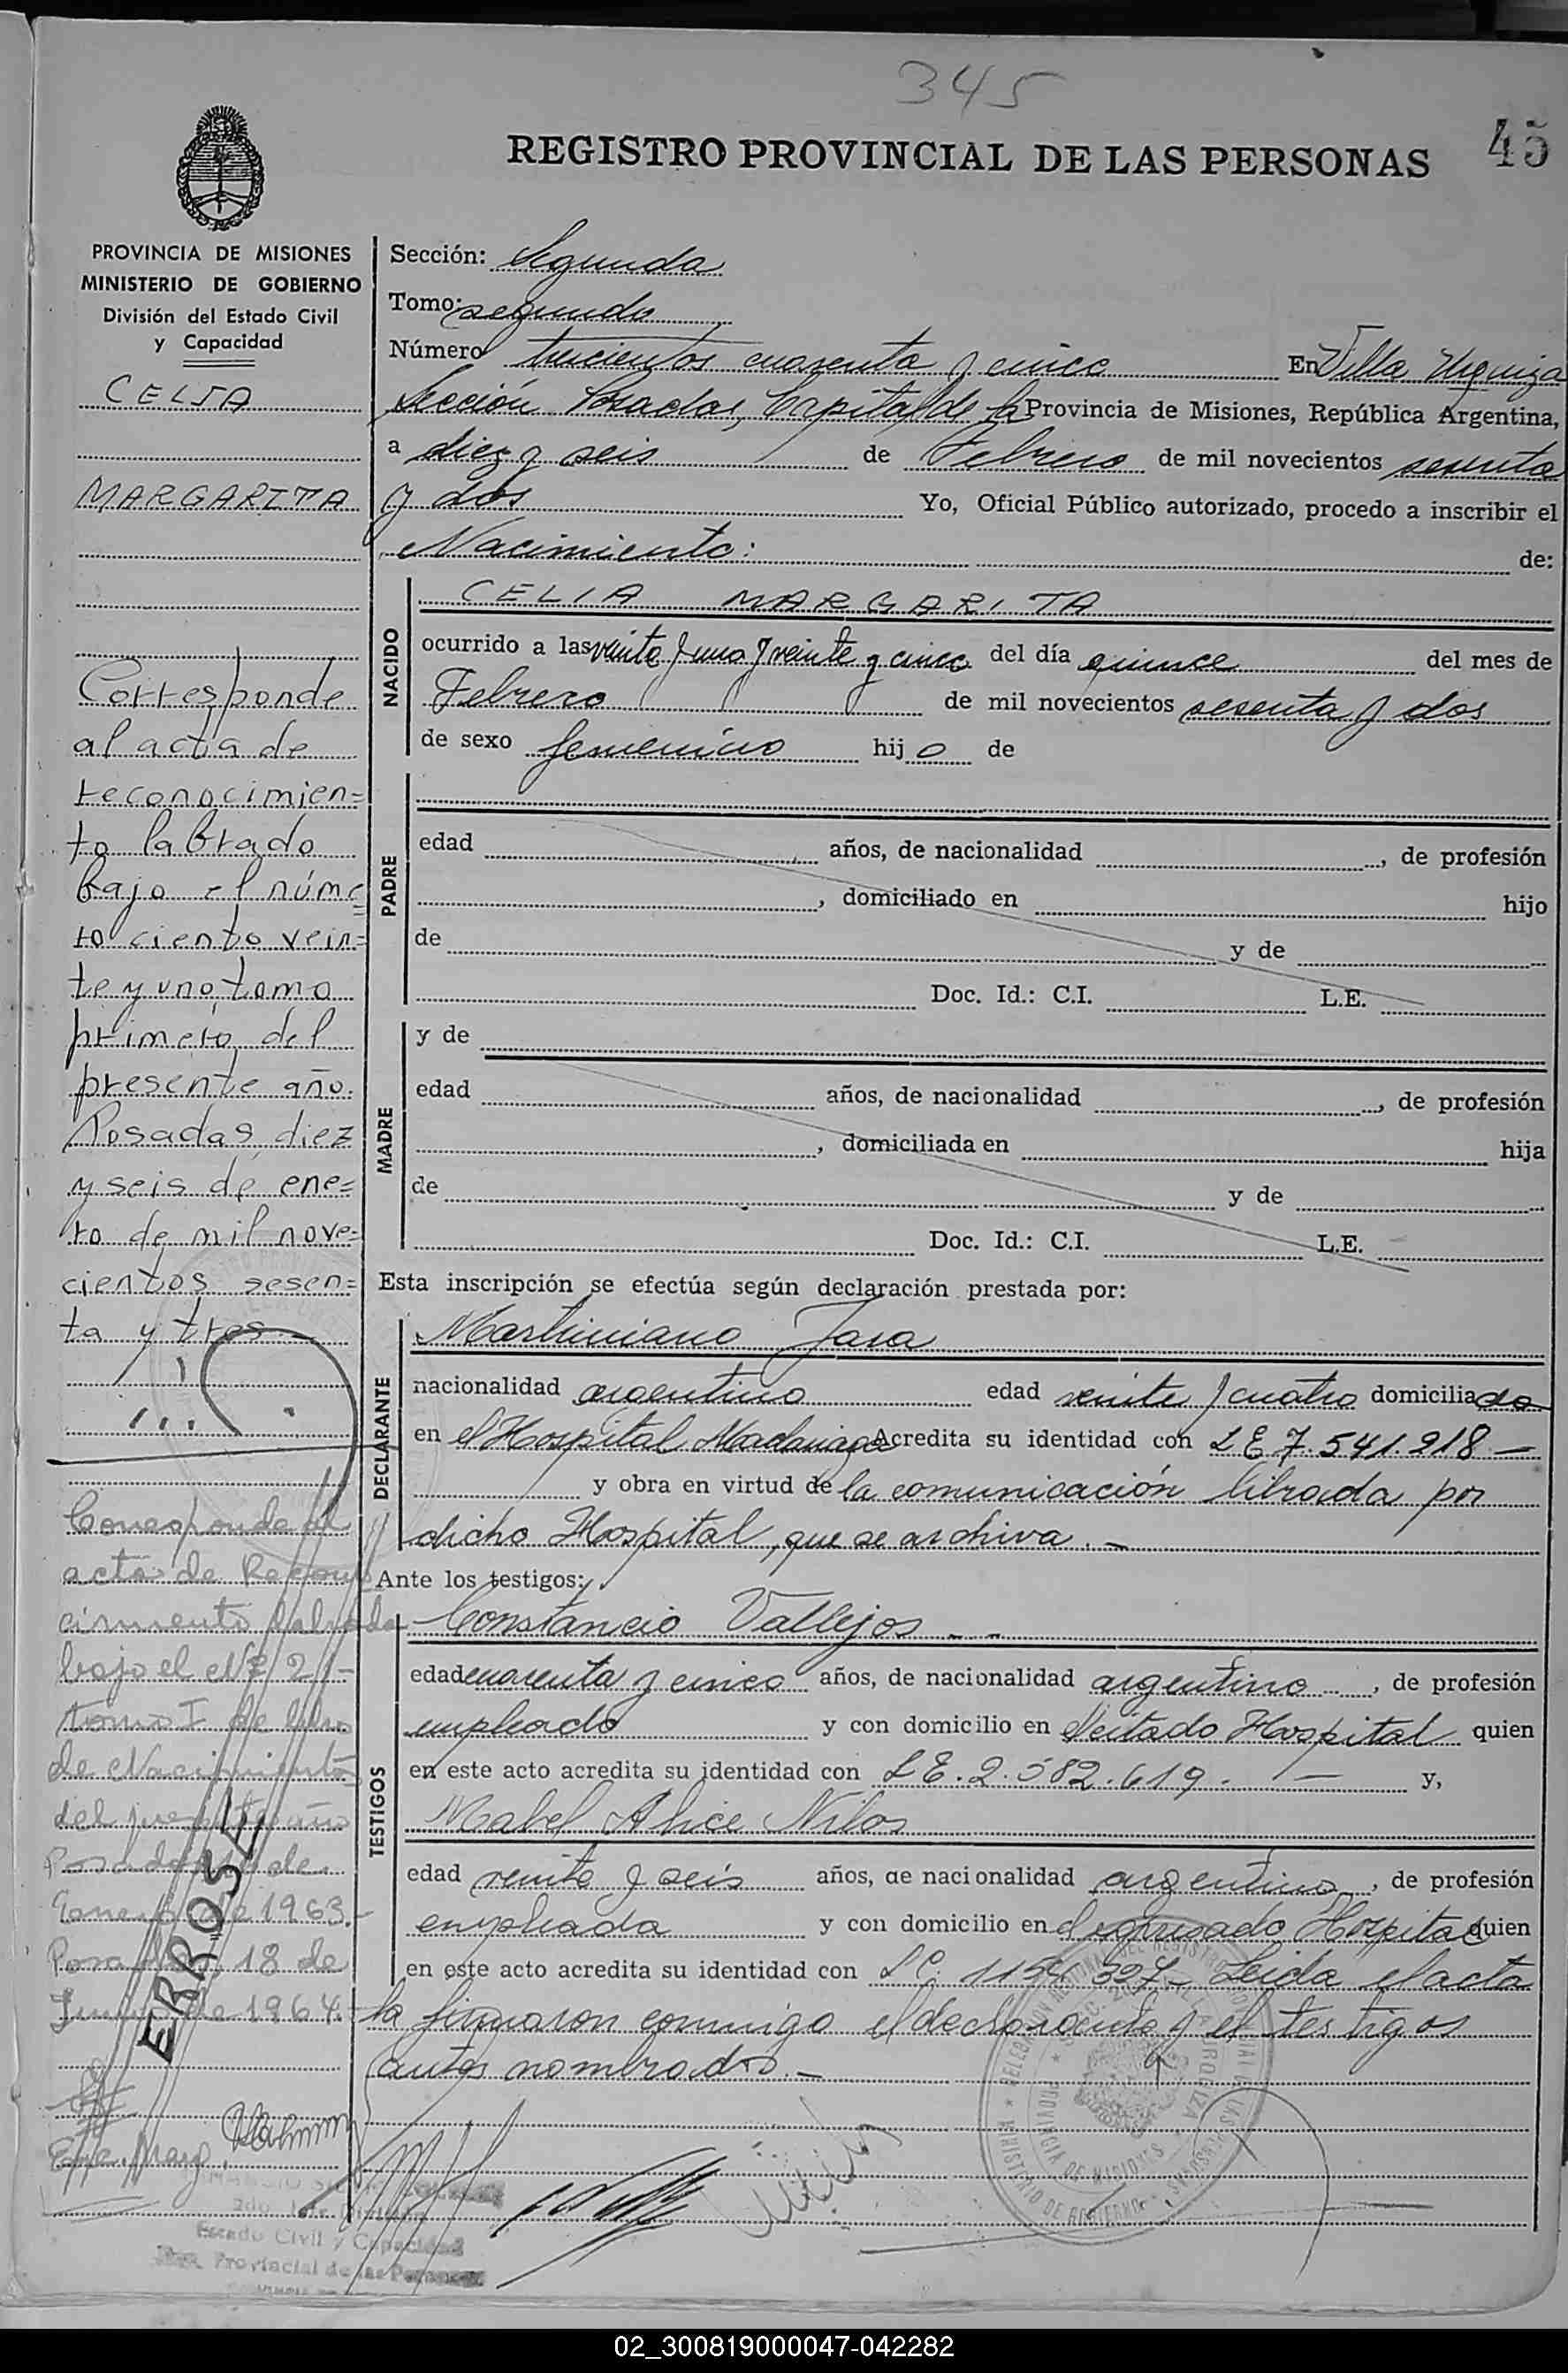 345
45
REGISTRO PROVINCIAL DE LAS PERSONAS
PROVINCIA DE MISIONES
MINISTERIO DE GOBIERNO
División del Estado Civil
y Capacidad
CELIA
MARGARITA
Corresponde
al acta de
reconocimien=
to labrado
bajo el núme
ro ciento vein=
te y uno, tomo
primero, del
presente año.
Posadas diez
y seis de ene=
ro de mil nove=
cientos sesen=
ta y tres.-
Corresponde al
acta de Recono
cimiento labrada
bajo el Nº 21-
tomo I de libro
de Nacimiento
del presente año
Posadas de
Enero de 1963.-
Posadas, 18 de
Junio de 1964.-
ERROSE
Sección: Segunda
Tomo: segundo
Número trescientos cuarenta y cinco En Villa Urquiza
Sección Posadas, Capital de la Provincia de Misiones, República Argentina,
a diez y seis de Febrero de mil novecientos sesenta
y dos Yo, Oficial Público autorizado, procedo a inscribir el
Nacimiento: de:
NACIDO
CELIA MARGARITA
ocurrido a las veinte y una y veinte y cinco del día quince del mes de
Febrero de mil novecientos sesenta y dos
de sexo femenino hijo de
PADRE
edad años, de nacionalidad , de profesión
, domiciliado en hijo
de y de
Doc. Id.: C.I. L.E.
MADRE
y de
edad años, de nacionalidad , de profesión
, domiciliada en hija
de y de
Doc. Id.: C.I. L.E.
Esta inscripción se efectúa según declaración prestada por:
DECLARANTE
Martiniano Jara
nacionalidad argentino edad veinte y cuatro domiciliado
en el Hospital Madariaga Acredita su identidad con L E 7.541.918 —
y obra en virtud de la comunicación librada por
dicho Hospital, que se archiva.-
Ante los testigos:
TESTIGOS
Constancio Vallejos - -
edad cuarenta y cinco años, de nacionalidad argentino , de profesión
empleado y con domicilio en el citado Hospital quien
en este acto acredita su identidad con L E. 2.582.619. — y,
Mabel Alice
edad veinte y seis años, de nacionalidad argentina , de profesión
empleada y con domicilio en el expresado Hospital quien
en este acto acredita su identidad con L C. 1154 327- Leida el acta
la firmaron conmigo el declarante y el testigos
antes nombrados.-
MINISTERIO DE GOBIERNO
PROVINCIA DE MISIONES
Estado Civil y Capacidad
Provincial de las Personas
02_300819000047-042282